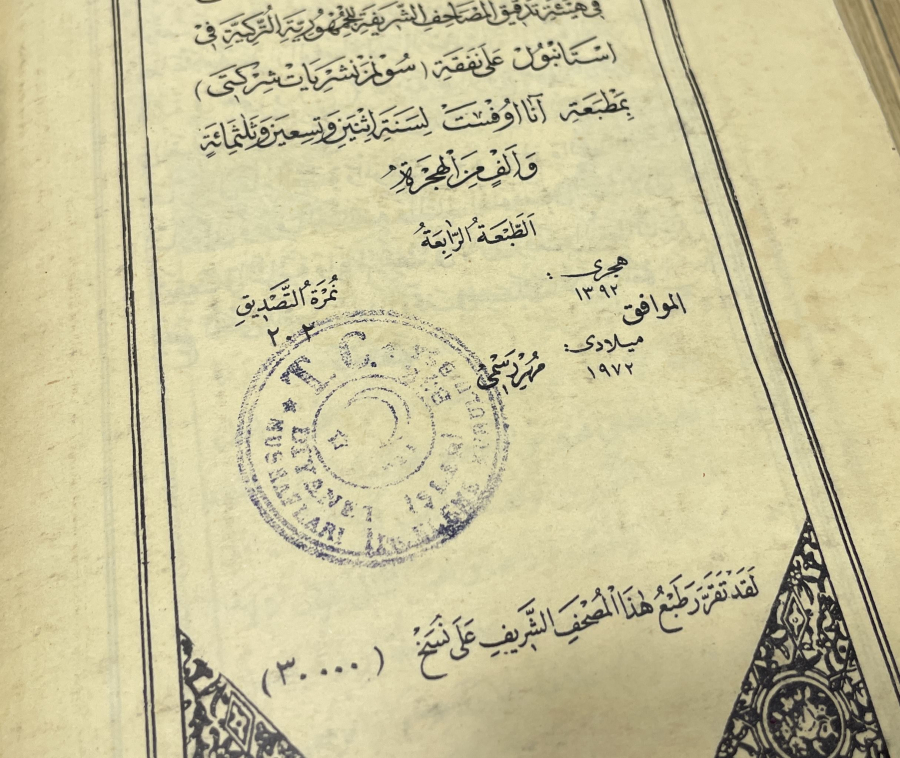 في هيئة تدقيق المصاحف الشريفة للجمهورية التركية في
اِسْتَانْبُولْ عَلَى نَفَقَةِ (سُونْمَزْ نَشْرِيَاتْ شِرْكَتِى)
بِمَطْبَعَةِ آنَا اُوفْسَتْ لِسَنَةِ اِثْنَيْنِ وَتِسْعِينَ وَثَلٰثِمِائَةٍ
وَاَلْفٍ مِنَ الْهِجْرَةِ
اَلطَّبْعَةُ الرَّابِعَةُ
هجرى :
١٣٩٢
الموافق
ميلادى :
١٩٧٢
نُمْرَةُ التَّصْدِيقِ
٢٠٢
مُهْرْ رَسْمِى
T.C.
DİYANET İŞLERİ
MUSHAFLARI İNCELEME
لَقَدْ تَقَرَّرَ طَبْعُ هٰذَا الْمُصْحَفِ الشَّرِيفِ عَلَى نُسَخْ (٣٠٠٠٠)